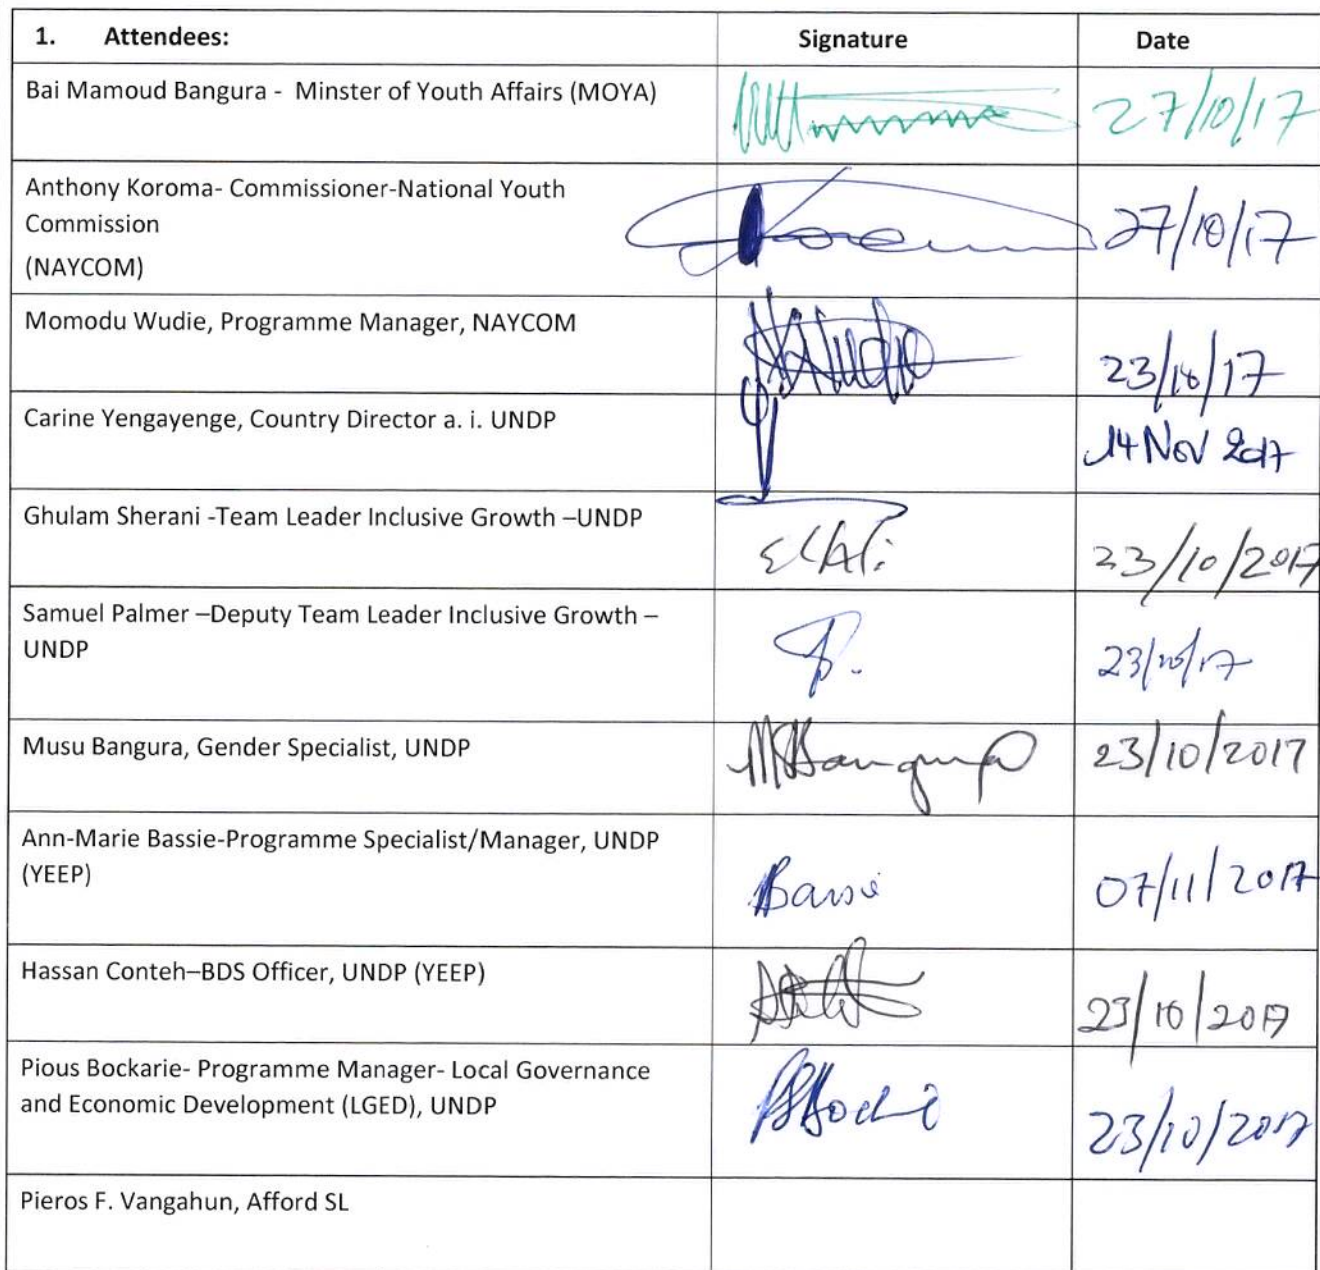 1. Attendees: Signature Date
Bai Mamoud Bangura - Minster of Youth Affairs (MOYA) 27/10/17
Anthony Koroma- Commissioner-National Youth
Commission
(NAYCOM) 27/10/17
Momodu Wudie, Programme Manager, NAYCOM 23/10/17
Carine Yengayenge, Country Director a. i. UNDP 14 Nov 2017
Ghulam Sherani -Team Leader Inclusive Growth –UNDP 23/10/2017
Samuel Palmer –Deputy Team Leader Inclusive Growth –
UNDP 23/10/17
Musu Bangura, Gender Specialist, UNDP MBangura 23/10/2017
Ann-Marie Bassie-Programme Specialist/Manager, UNDP
(YEEP) Bassie 07/11/2017
Hassan Conteh–BDS Officer, UNDP (YEEP) 23/10/2017
Pious Bockarie- Programme Manager- Local Governance
and Economic Development (LGED), UNDP 23/10/2017
Pieros F. Vangahun, Afford SL